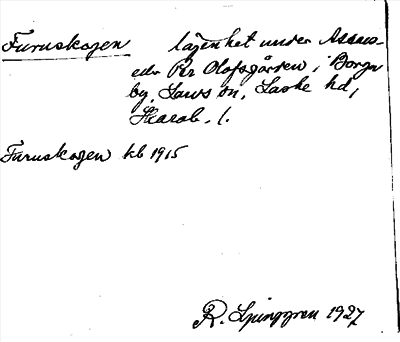 Furuskogen lägenhet under Assars-
eller Per Olofsgården i Borgu
by, sn, Laske hd,
Skarab. l.
Furuskogen kb 1915
R. Ljunggren 1927